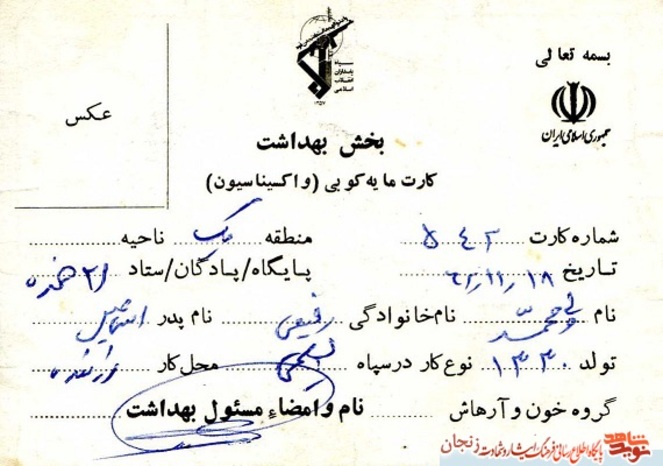 بسمه تعالی
جمهوری اسلامی ایران
سپاه
پاسداران
انقلاب
اسلامی
عکس
بخش بهداشت
کارت مایه کوبی (واکسیناسیون)
شماره کارت ۵۴۲ منطقه یک ناحیه
تاریخ ۶۲/۱۱/۱۸ پایگاه/پادگان/ستاد
نام ولی محمد نام خانوادگی رفیعی نام پدر اسماعیل
تولد ۱۳۳۰ نوع کار در سپاه بسیجی محل کار
گروه خون و آرهاش نام و امضاء مسئول بهداشت
نوید شاهد پایگاه اطلاع رسانی فرهنگ ایثار و شهادت زنجان